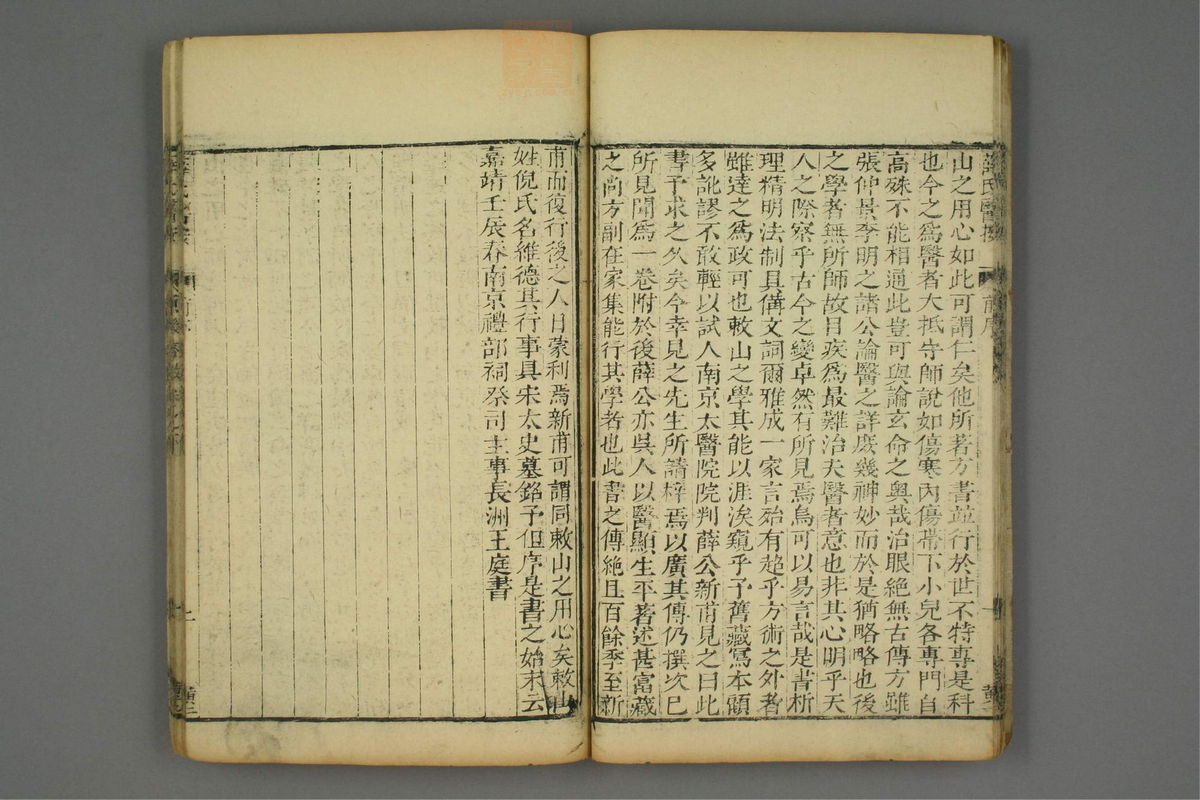 山之用心如此可謂仁矣他所著方書並行於世不特專是科
也今之為醫者大抵守師說如傷寒內傷帶下小兒各專門自
高殊不能相通此豈可與論玄命之奧哉治眼絕無古傳方雖
張仲景李明之諸公論醫之詳庶幾神妙而於是猶略略也後
之學者無所師故目疾為最難治夫醫者意也非其心明乎天
人之際察乎古今之變卓然有所見焉烏可以易言哉是書析
理精明法制具備文詞爾雅成一家言殆有超乎方術之外者
雖達之為政可也敕山之學其能以涯涘窺乎予舊藏寫本頗
多訛謬不敢輕以試人南京太醫院院判薛公新甫見之曰此
書予求之久矣今幸見之先生所請梓焉以廣其傳仍撰次已
所見聞為一卷附於後薛公亦吳人以醫顯生平著述甚富藏
之尚方副在家集能行其學者也此書之傳絕且百餘季至新
甫而復行後之人日蒙利焉新甫可謂同敕山之用心矣敕山
姓倪氏名維德其行事具宋太史墓銘予但序是書之始末云
嘉靖壬辰春南京禮部祠祭司主事長洲王庭書